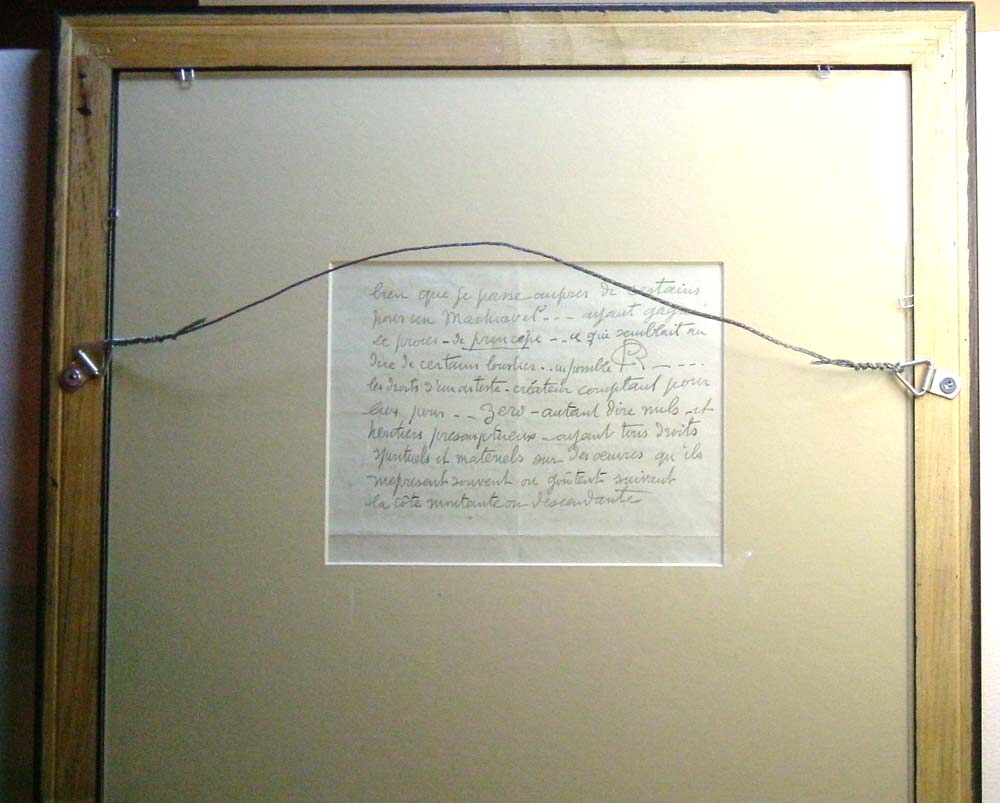 bien que je passe aupres de certains
pour un Machiavel - - - ayant gagné
le procès - de principe - - ce qui semblait au
dire de certains impossible R - - - -
les droits d'un artiste - créateur comptant pour
eux pour - - zero - autant dire nuls - et
heritiers presomptueux - ayant tous droits
spirituels et materiels sur des oeuvres qu'ils
meprisent souvent ou goûtent suivant
la côte montante ou descendante